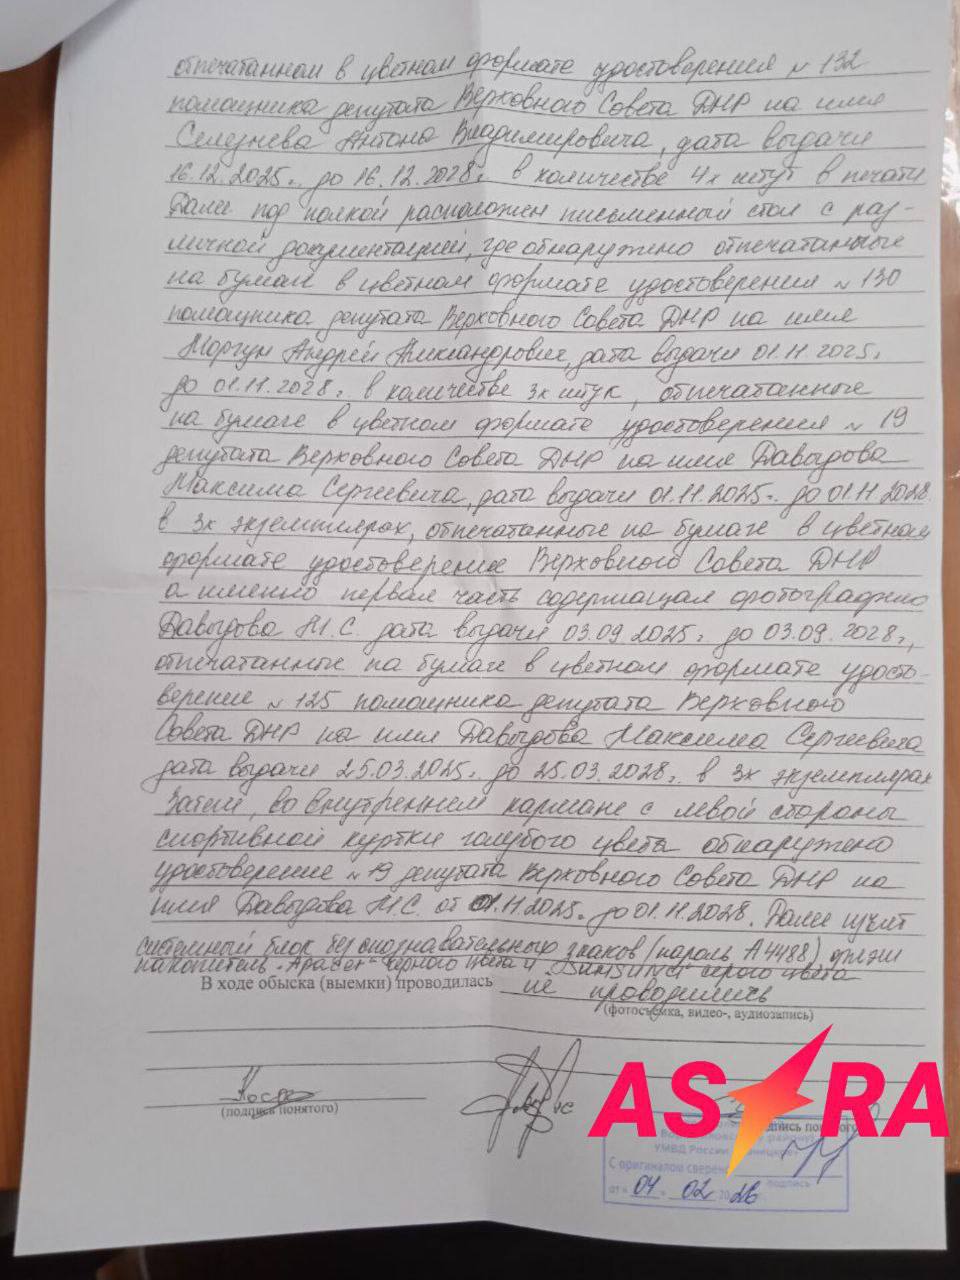 отпечатанном в цветном формате удостоверения № 132
помощника депутата Верховного Совета ДНР на имя
Селезнева Антона Владимировича, дата выдачи
16.12.2025г. до 16.12.2028г. в количестве 4х штук в печати
Далее под полкой расположен письменный стол с раз-
личной документацией, где обнаружено отпечатанные
на бумаге в цветном формате удостоверения № 130
помощника депутата Верховного Совета ДНР на имя
Моргун Андрей Александрович, дата выдачи 01.11.2025г.
до 01.11.2028г. в количестве 3х штук, отпечатанные
на бумаге в цветном формате удостоверения № 19
депутата Верховного Совета ДНР на имя Давыдова
Максима Сергеевича, дата выдачи 01.11.2025г. до 01.11.2028.
в 3х экземплярах, отпечатанные на бумаге в цветном
формате удостоверение Верховного Совета ДНР
а именно первая часть содержащая фотографию
Давыдова М.С. дата выдачи 03.09.2025г. до 03.09.2028г.,
отпечатанные на бумаге в цветном формате удосто-
верение № 125 помощника депутата Верховного
Совета ДНР на имя Давыдова Максима Сергеевича
дата выдачи 25.03.2025г. до 25.03.2028г. в 3х экземплярах
Затем, во внутреннем кармане с левой стороны
спортивной куртки голубого цвета обнаружено
удостоверение № 19 депутата Верховного Совета ДНР на
имя Давыдова М.С. от 01.11.2025г. до 01.11.2028. Далее
системный блок без опознавательных знаков (пароль А4488) флэш
накопитель "Apacer" черного цвета и "SAMSUNG" серого цвета
В ходе обыска (выемки) проводилась не проводились
(фотосъемка, видео-, аудиозапись)
(подпись понятого)
подпись понятого)
ASTRA
УМВД России
С оригиналом сверено
подпись
от « 04 » 02 2026